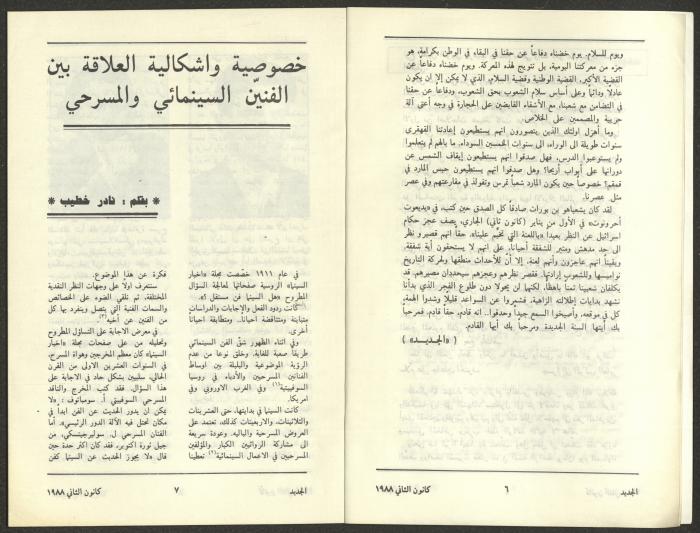 ويوم للسلام. يوم خضناه دفاعاً عن حقنا في البقاء في الوطن بكرامة، هو
جزء من معركتنا اليومية، بل تتويج لهذه المعركة. ويوم خضناه دفاعاً عن
القضية الأكبر، القضية الوطنية وقضية السلام، الذي لا يمكن إلا ان يكون
عادلا ودائماً وعلى أساس سلام الشعوب بحق الشعوب، ودفاعاً عن حقنا
في التضامن مع شعبنا، مع الأشقاء القابضين على الحجارة في وجه أعتى آلة
حربية والمصممين على الخلاص.
وما أهزل اولئك الذين يتصورون انهم يستطيعون إعادتنا القهقرى
سنوات طويلة الى الوراء، الى سنوات الخمسين السوداء. ما بالهم لم يتعلموا
ولم يستوعبوا الدرس، فهل صدقوا انهم يستطيعون إيقاف الشمس عن
دورانها على أبواب أريحا؟ وهل صدقوا انهم يستطيعون حبس المارد في
قمقم؟ خصوصاً حين يكون المارد شعباً تمرس وتفولذ في مقارعتهم وفي عصر
مثل عصرنا.
لقد كان يشعياهو بن بورات صادقاً كل الصدق حين كتب، في «يديعوت
أحرونوت» في الأول من يناير (كانون ثاني) الجاري، يصف عجز حكام
اسرائيل عن النظر بعيدا «باللعنة التي تخيّم علينا». حقاً انهم قصيرو نظر
الى حد مدهش ومثير للشفقة أحياناً، على انهم لا يستحقون أية شفقة.
ويقيناً انهم عاجزون وأنهم لعنة، إلا أنّ للأحداث منطقها ولحركة التاريخ
نواميسها وللشعوب إرادتها. فقصر نظرهم وعجزهم سيحددان مصيرهم. قد
يكلفان شعبينا ثمناً باهظاً، لكنها لن يحولا دون طلوع الفجر الذي بدأنا
نشهد بدايات إطلالته الزاهية. فشمروا عن السواعد قليلاً وشدوا الهمة،
كل في موقعه، وأصيخوا السمع جيداً وحدقوا.. انه قادم، حقاً قادم. فمرحباً
بك أيتها السنة الجديدة. ومرحباً بك أيها القادم.
( «الجديد» )
الجديد ٦ كانون الثاني ١٩٨٨
خصوصية واشكالية العلاقة بين
الفنيّن السينمائي والمسرحي
* بقلم : نادر خطيب *
في عام ١٩١١ خصّصت مجلة «اخبار
السينما» الروسية صفحاتها لمعالجة السؤال
المطروح «هل السينما فن مستقل ؟».
كانت ردود الفعل والإجابات والدراسات
متباينة ومتناقضة احياناً.. ومتطابقة احياناً
أخرى.
وفي اثناء الظهور شقّ الفن السينمائي
طريقا صعبة للغاية، وخلق نوعا من عدم
الرؤية الموضوعية والبلبلة بين اوساط
الفنانين المسرحيين والأدباء في روسيا
السوفييتية(١) وفي الغرب الاوروبي وفي
امريكا.
كانت السينما في بدايتها، حتى العشرينات
والثلاثينات، والاربعينات كذلك، تعتمد على
العروض المسرحية والباليه. وعودة سريعة
الى مشاركة الروائيين الكبار والمؤلفين
المسرحيين في الاعمال السينمائية(٢) تعطينا
فكرة عن هذا الموضوع.
سنتعرف اولا على وجهات النظر النقدية
المختلفة، ثم نلقي الضوء على الخصائص
والسمات الفنية التي يتصل وينفرد بها كل
من الفنين عن أخيه(٣).
في معرض الاجابة على التساؤل المطروح
وتحليله من على صفحات مجلة «اخبار
السينما» كان معظم المخرجين وهواة المسرح،
في السنوات العشرين الاولى من القرن
الحالي، سلبيين بشكل حاد في الاجابة على
هذا السؤال. فقد كتب المخرج والناقد
المسرحي السوفييتي أ. سوماتوف : «لا
يمكن ان يدور الحديث عن الفن ابدأ في
مكان تحتل فيه الآلة الدور الرئيسي». أما
الفنان المسرحي ل. سوليرجيتسكي، من
جيل ثورة اكتوبر، فقد كان اكثر حدة حين
قال «لا يجوز الحديث عن السينما كفن
الجديد ٧ كانون الثاني ١٩٨٨